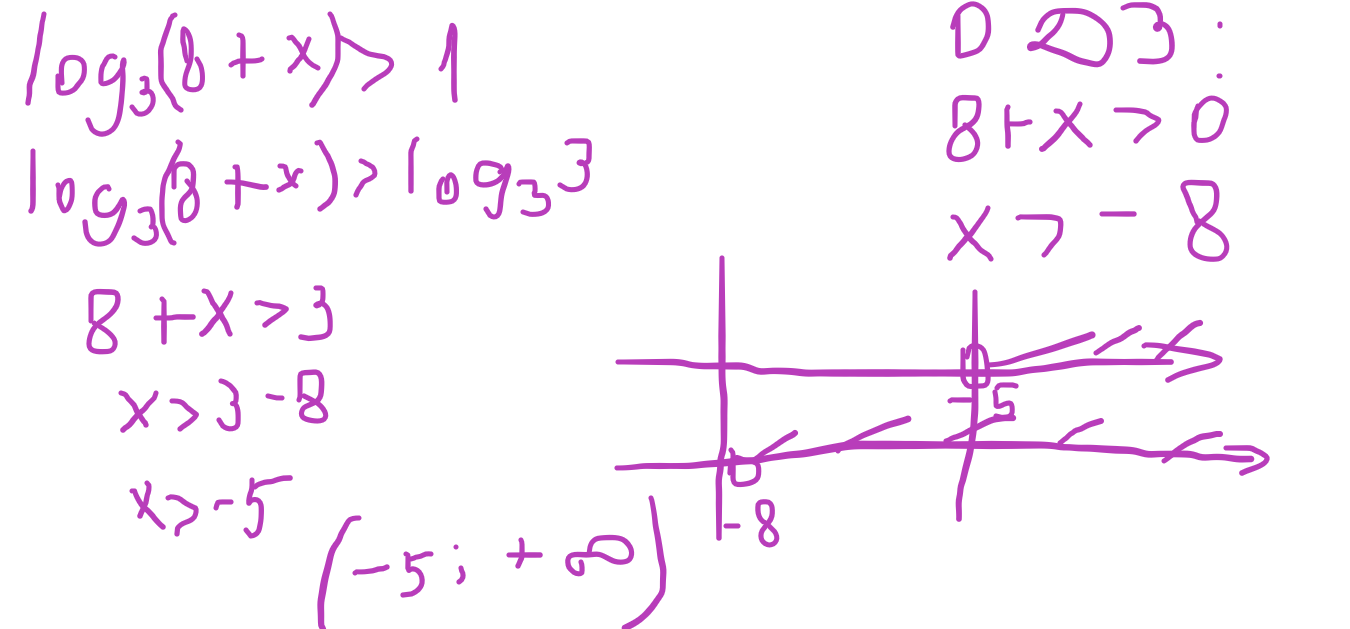 log₃(8 + x) > 1
log₃(8 + x) > log₃3
8 + x > 3
x > 3 - 8
x > -5
(-5; +∞)
ОДЗ:
8 + x > 0
x > -8
-5
-8